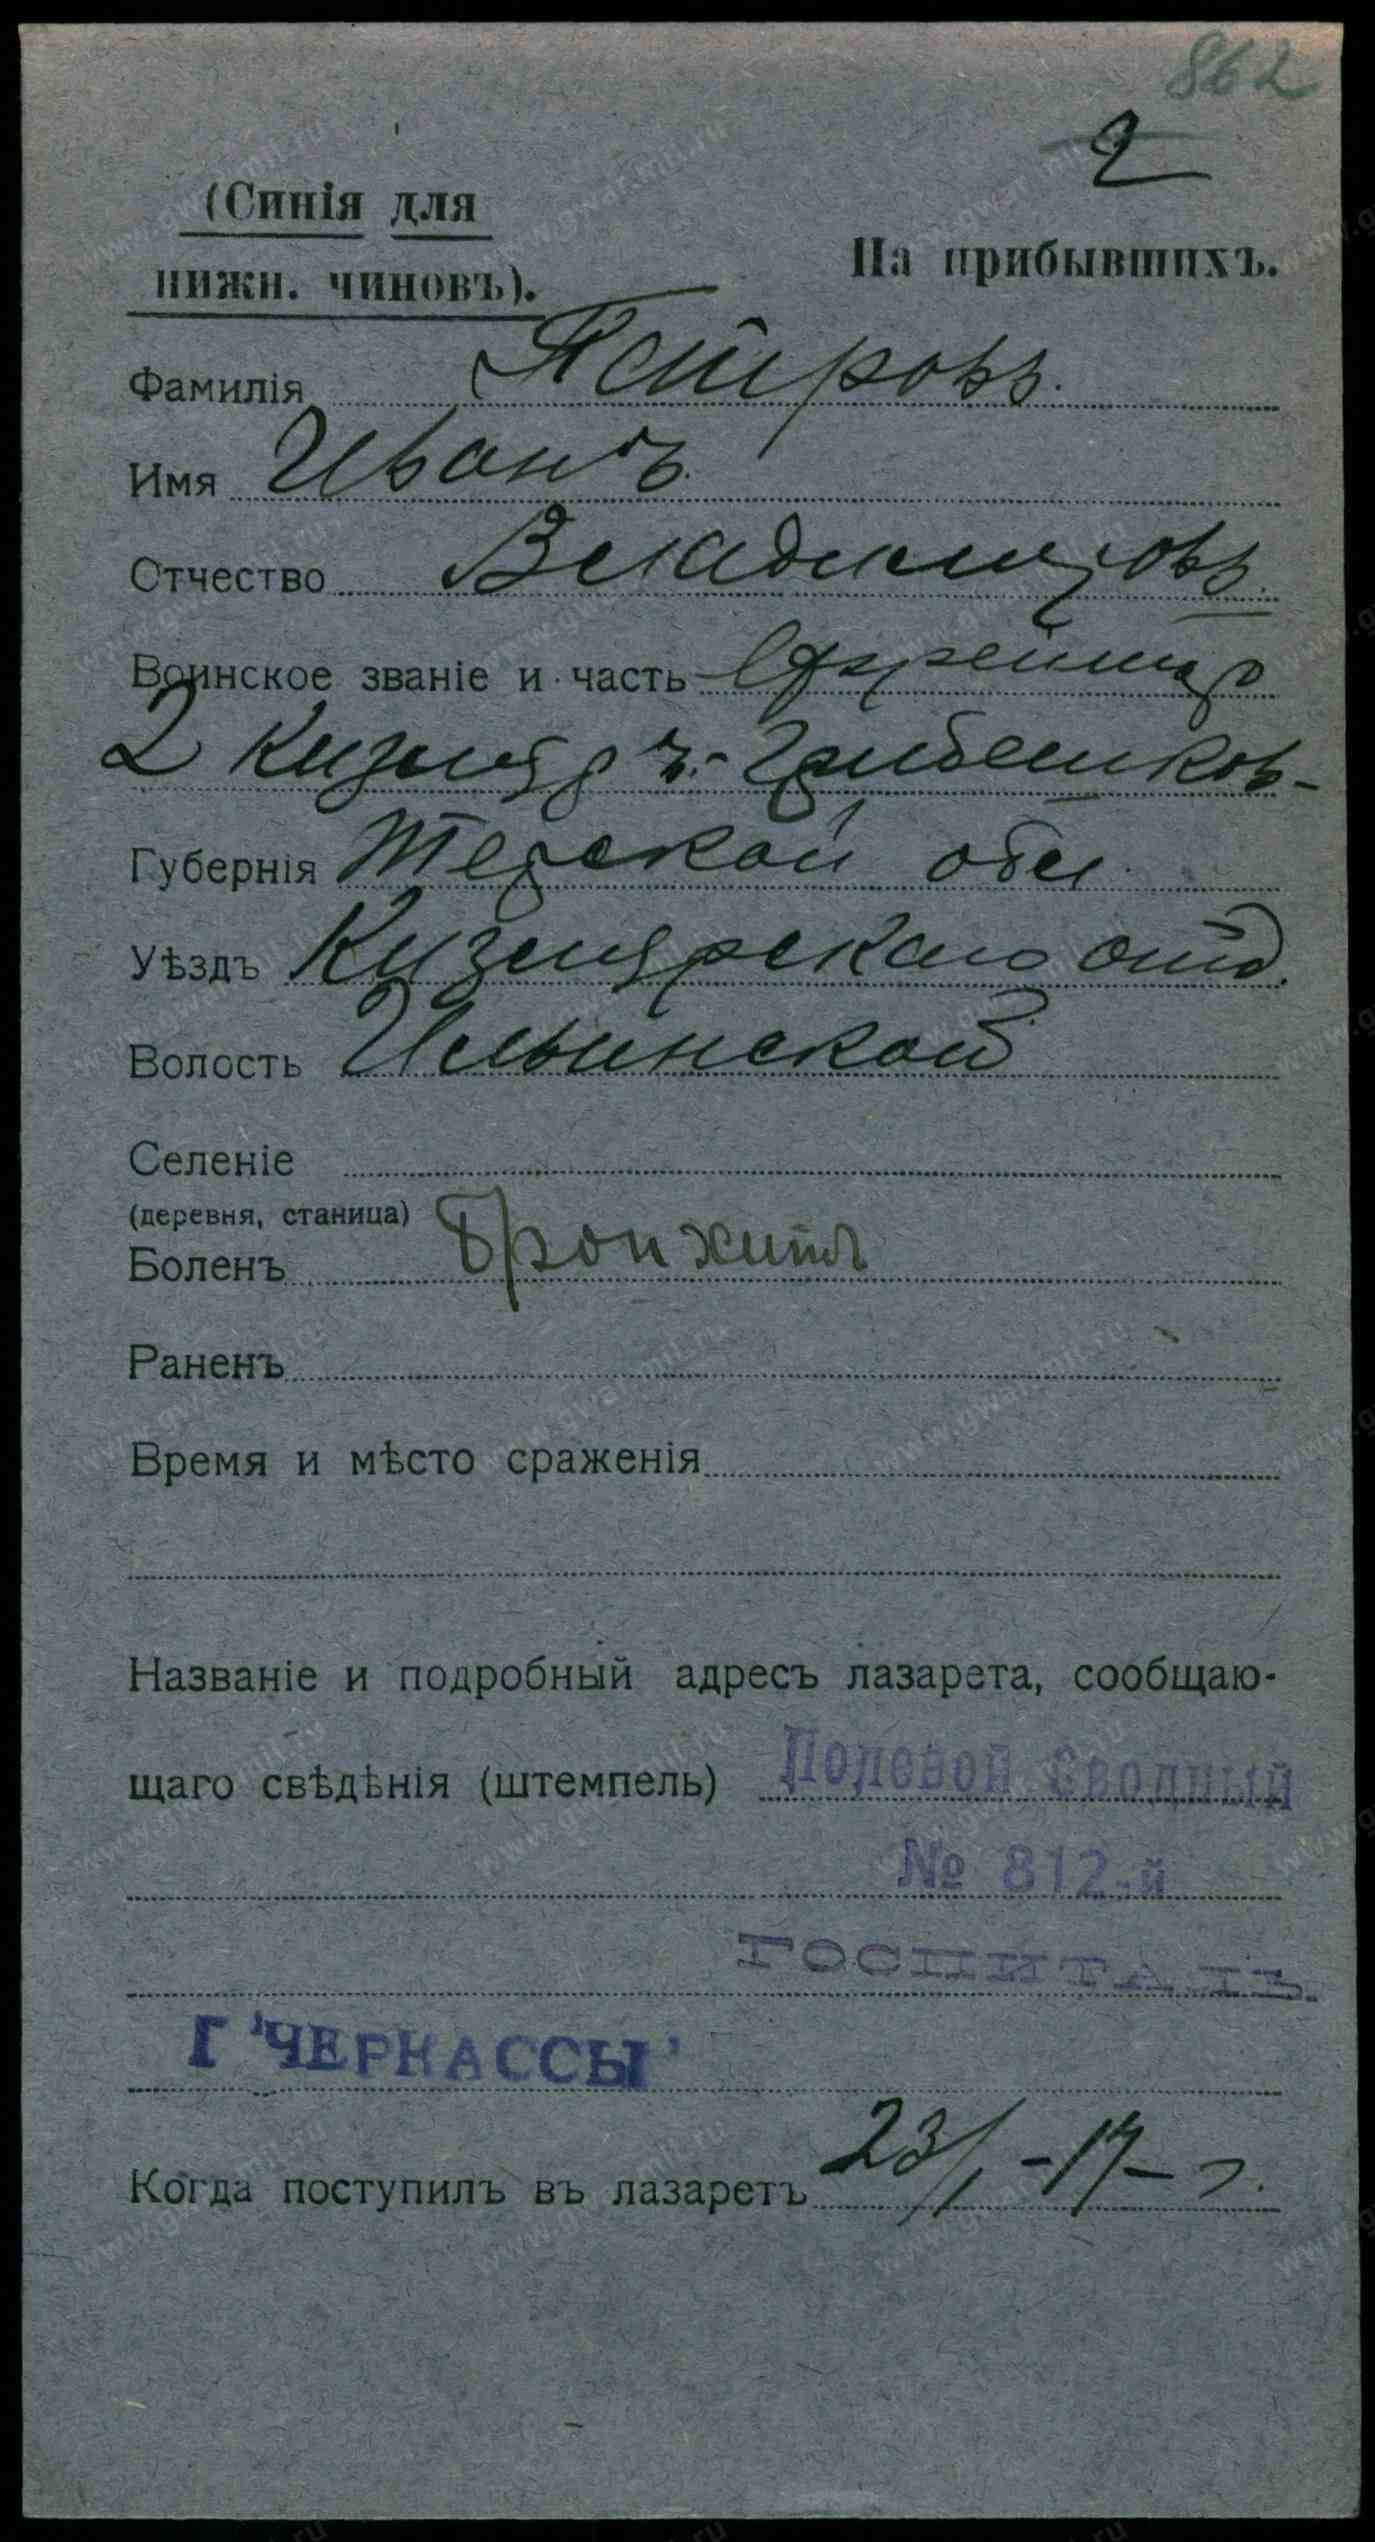 862
2
(Синія для
нижн. чиновъ).
На прибывшихъ.
Фамилія Петровъ.
Имя Иванъ.
Отчество Владимировъ.
Воинское званіе и часть Ефрейтор
2 Кизляръ.-Гребенсков-
Губернія Терской обл.
Уѣздъ Кизлярскаго отд.
Волость Ильинской
Селеніе
(деревня, станица)
Боленъ Бронхитъ
Раненъ
Время и мѣсто сраженія
Названіе и подробный адресъ лазарета, сообщаю-
щаго свѣдѣнія (штемпель) Полевой Сводный
№ 812-й
ГОСПИТАЛЬ.
Г "ЧЕРКАССЫ"
Когда поступилъ въ лазаретъ 23/1-17-г.